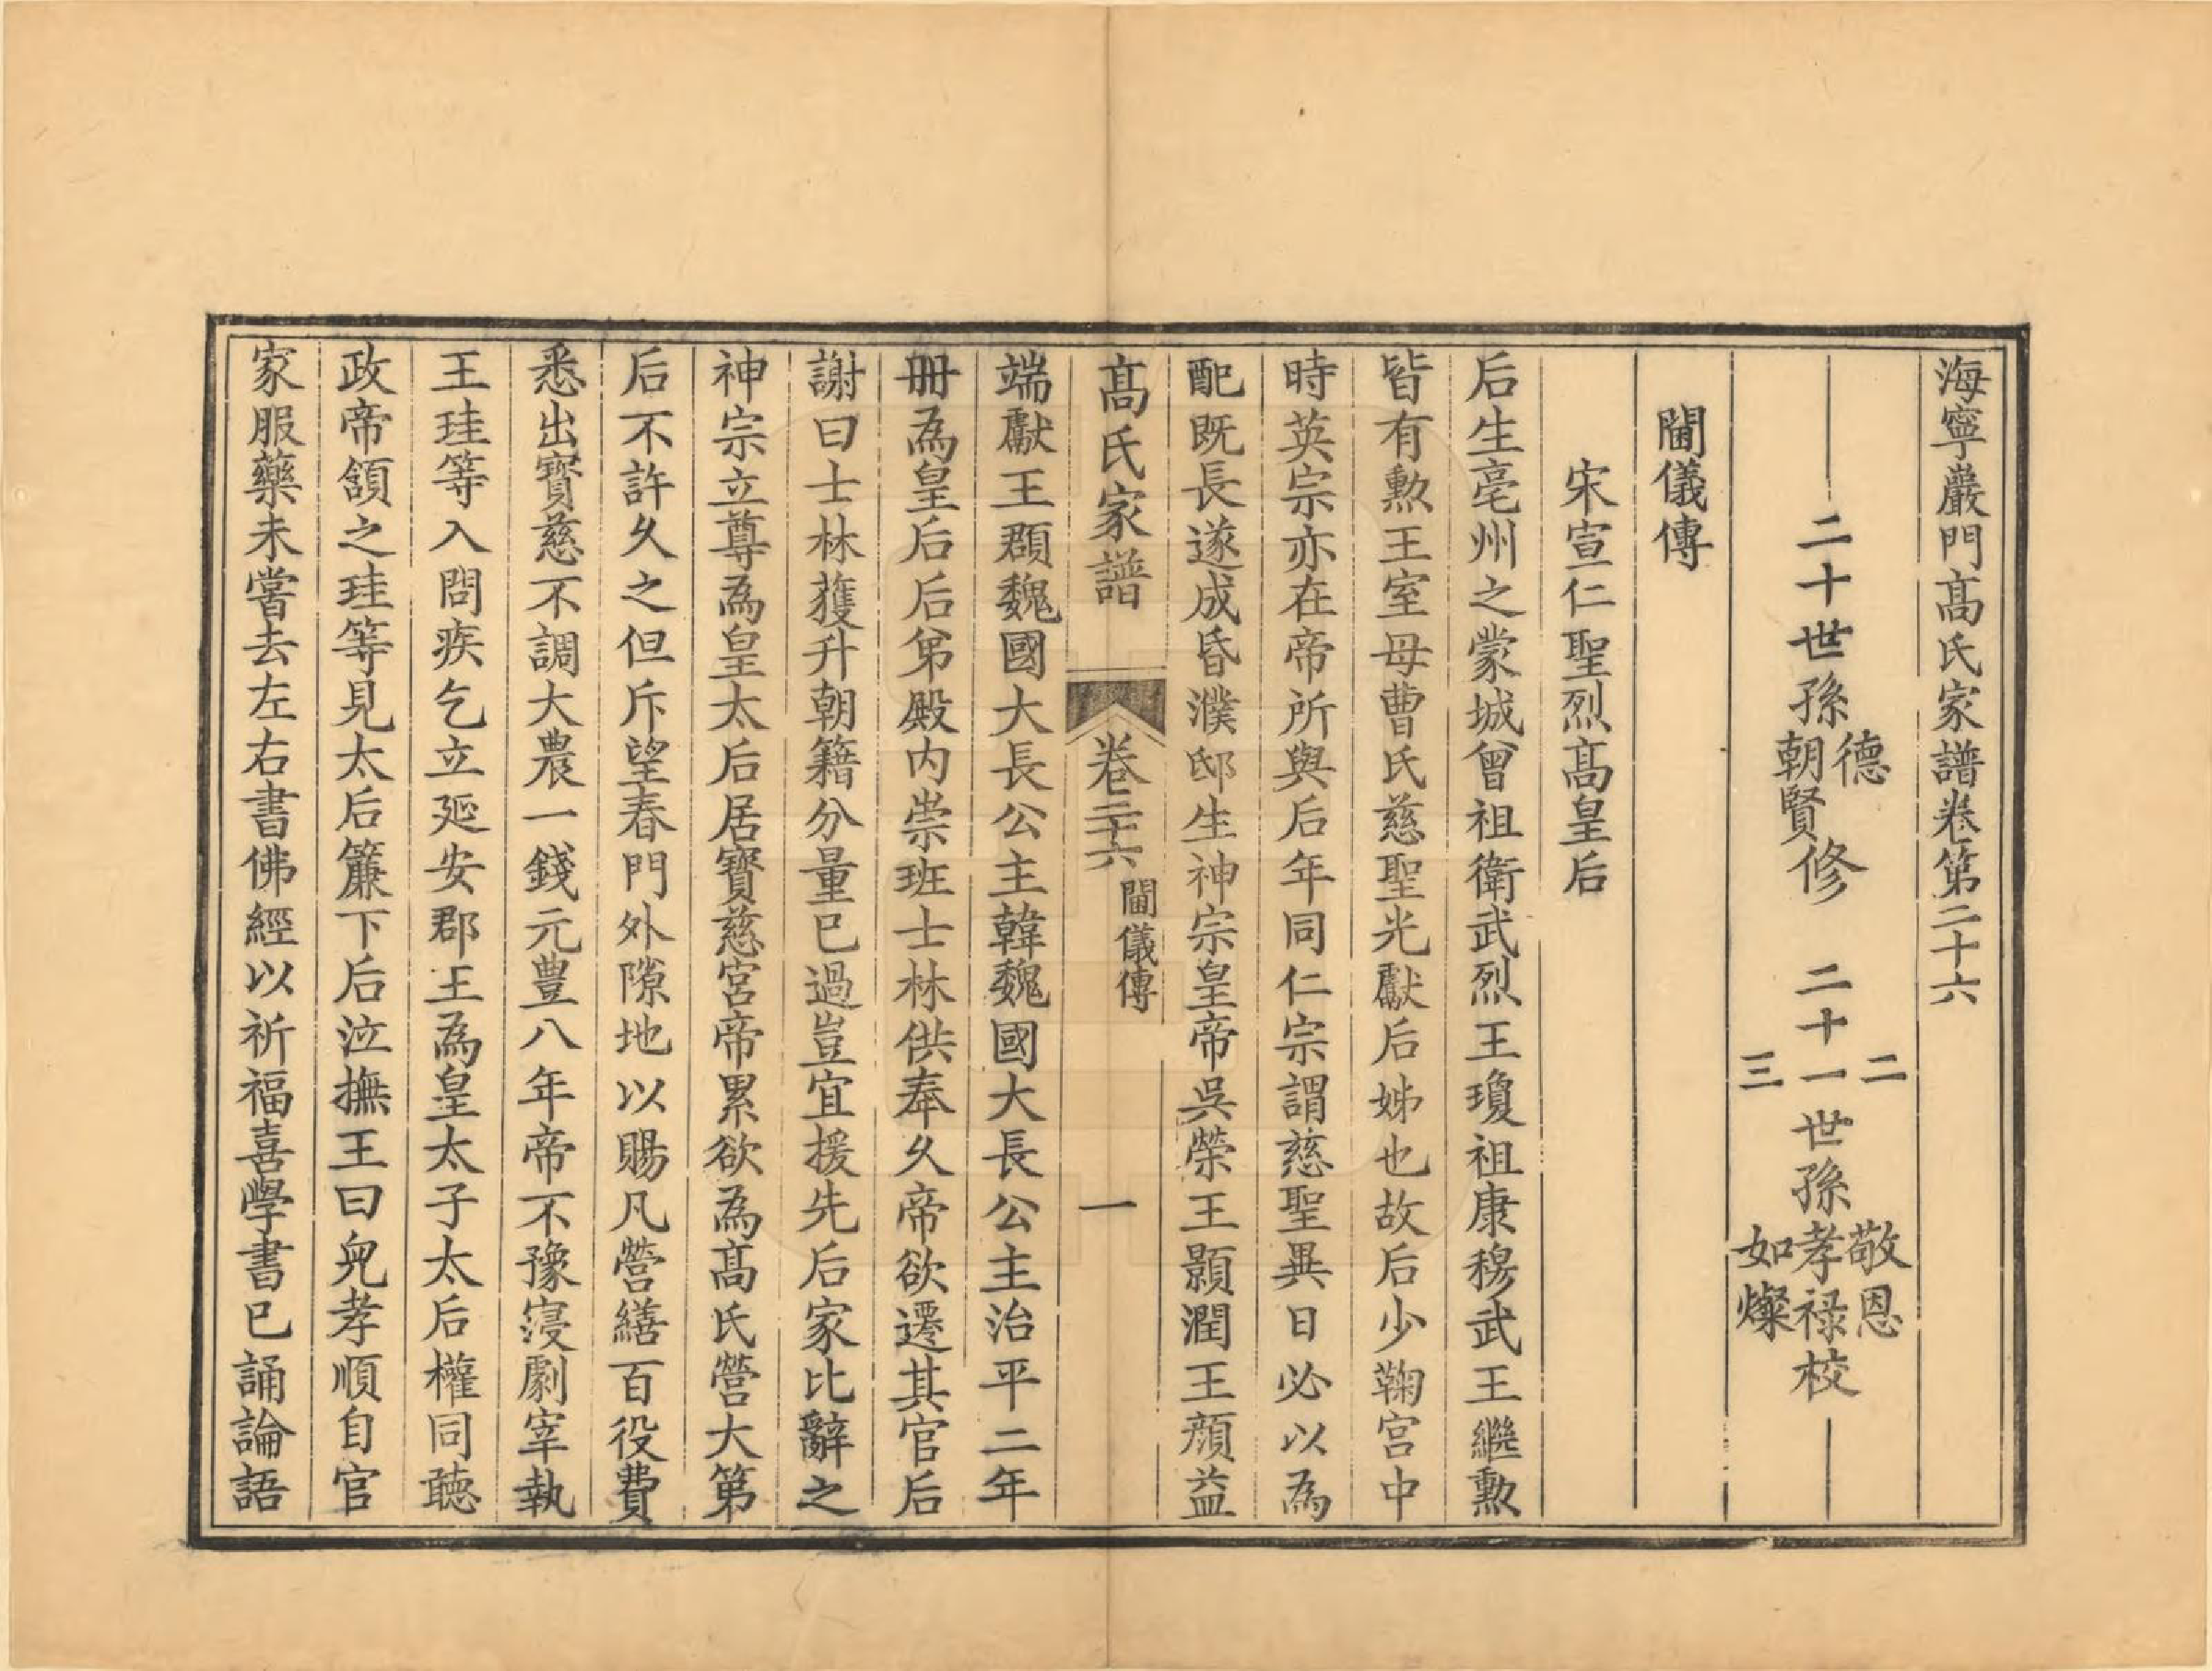 海寧嚴門髙氏家譜卷第二十六
二十世孫德朝賢修 二十一二三世孫敬恩孝禄如燦校
閫儀傳
宋宣仁聖烈髙皇后
后生亳州之蒙城曾祖衛武烈王瓊祖康穆武王繼勲
皆有勲王室母曹氏慈聖光獻后姊也故后少鞠宫中
時英宗亦在帝所與后年同仁宗謂慈聖異日必以為
配既長遂成昏濮邸生神宗皇帝吳榮王顥潤王顔益
髙氏家譜 卷二十六 閫儀傳 一
端獻王頵魏國大長公主韓魏國大長公主治平二年
冊為皇后后弟殿内崇班士林供奉久帝欲遷其官后
謝曰士林獲升朝籍分量已過豈宜援先后家比辭之
神宗立尊為皇太后居寶慈宮帝累欲為髙氏營大第
后不許久之但斥望春門外隙地以賜凡營繕百役費
悉出寳慈不調大農一錢元豊八年帝不豫寖劇宰執
王珪等入問疾乞立延安郡王為皇太子太后權同聽
政帝頷之珪等見太后簾下后泣撫王曰兒孝順自官
家服藥未嘗去左右書佛經以祈福喜學書已誦論語